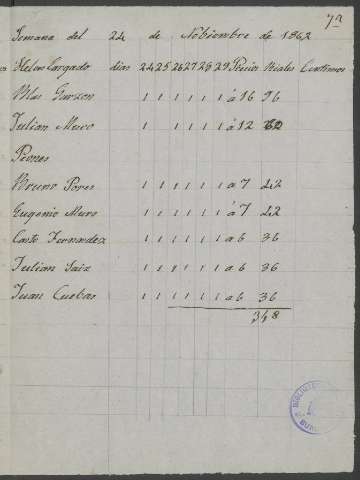 72
Semana del 24 de Nobiembre de 1862
dias 24 25 26 27 28 29 Precios Reales Centimos
Blas Garzon 1 1 1 1 1 1 á 16 96
Julian Muro 1 1 1 1 1 1 á 12 72
Peones
Bruno Pores 1 1 1 1 1 1 a 7 42
Eugenio Muro 1 1 1 1 1 1 á 7 42
Casto Fernandez 1 1 1 1 1 1 a 6 36
Julian Saiz 1 1 1 1 1 1 a 6 36
Juan Cuebas 1 1 1 1 1 1 a 6 36
348